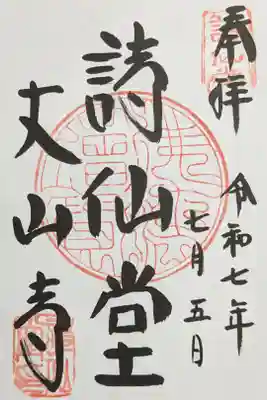 奉拝
令和七年
七月五日
詩仙堂
丈山寺